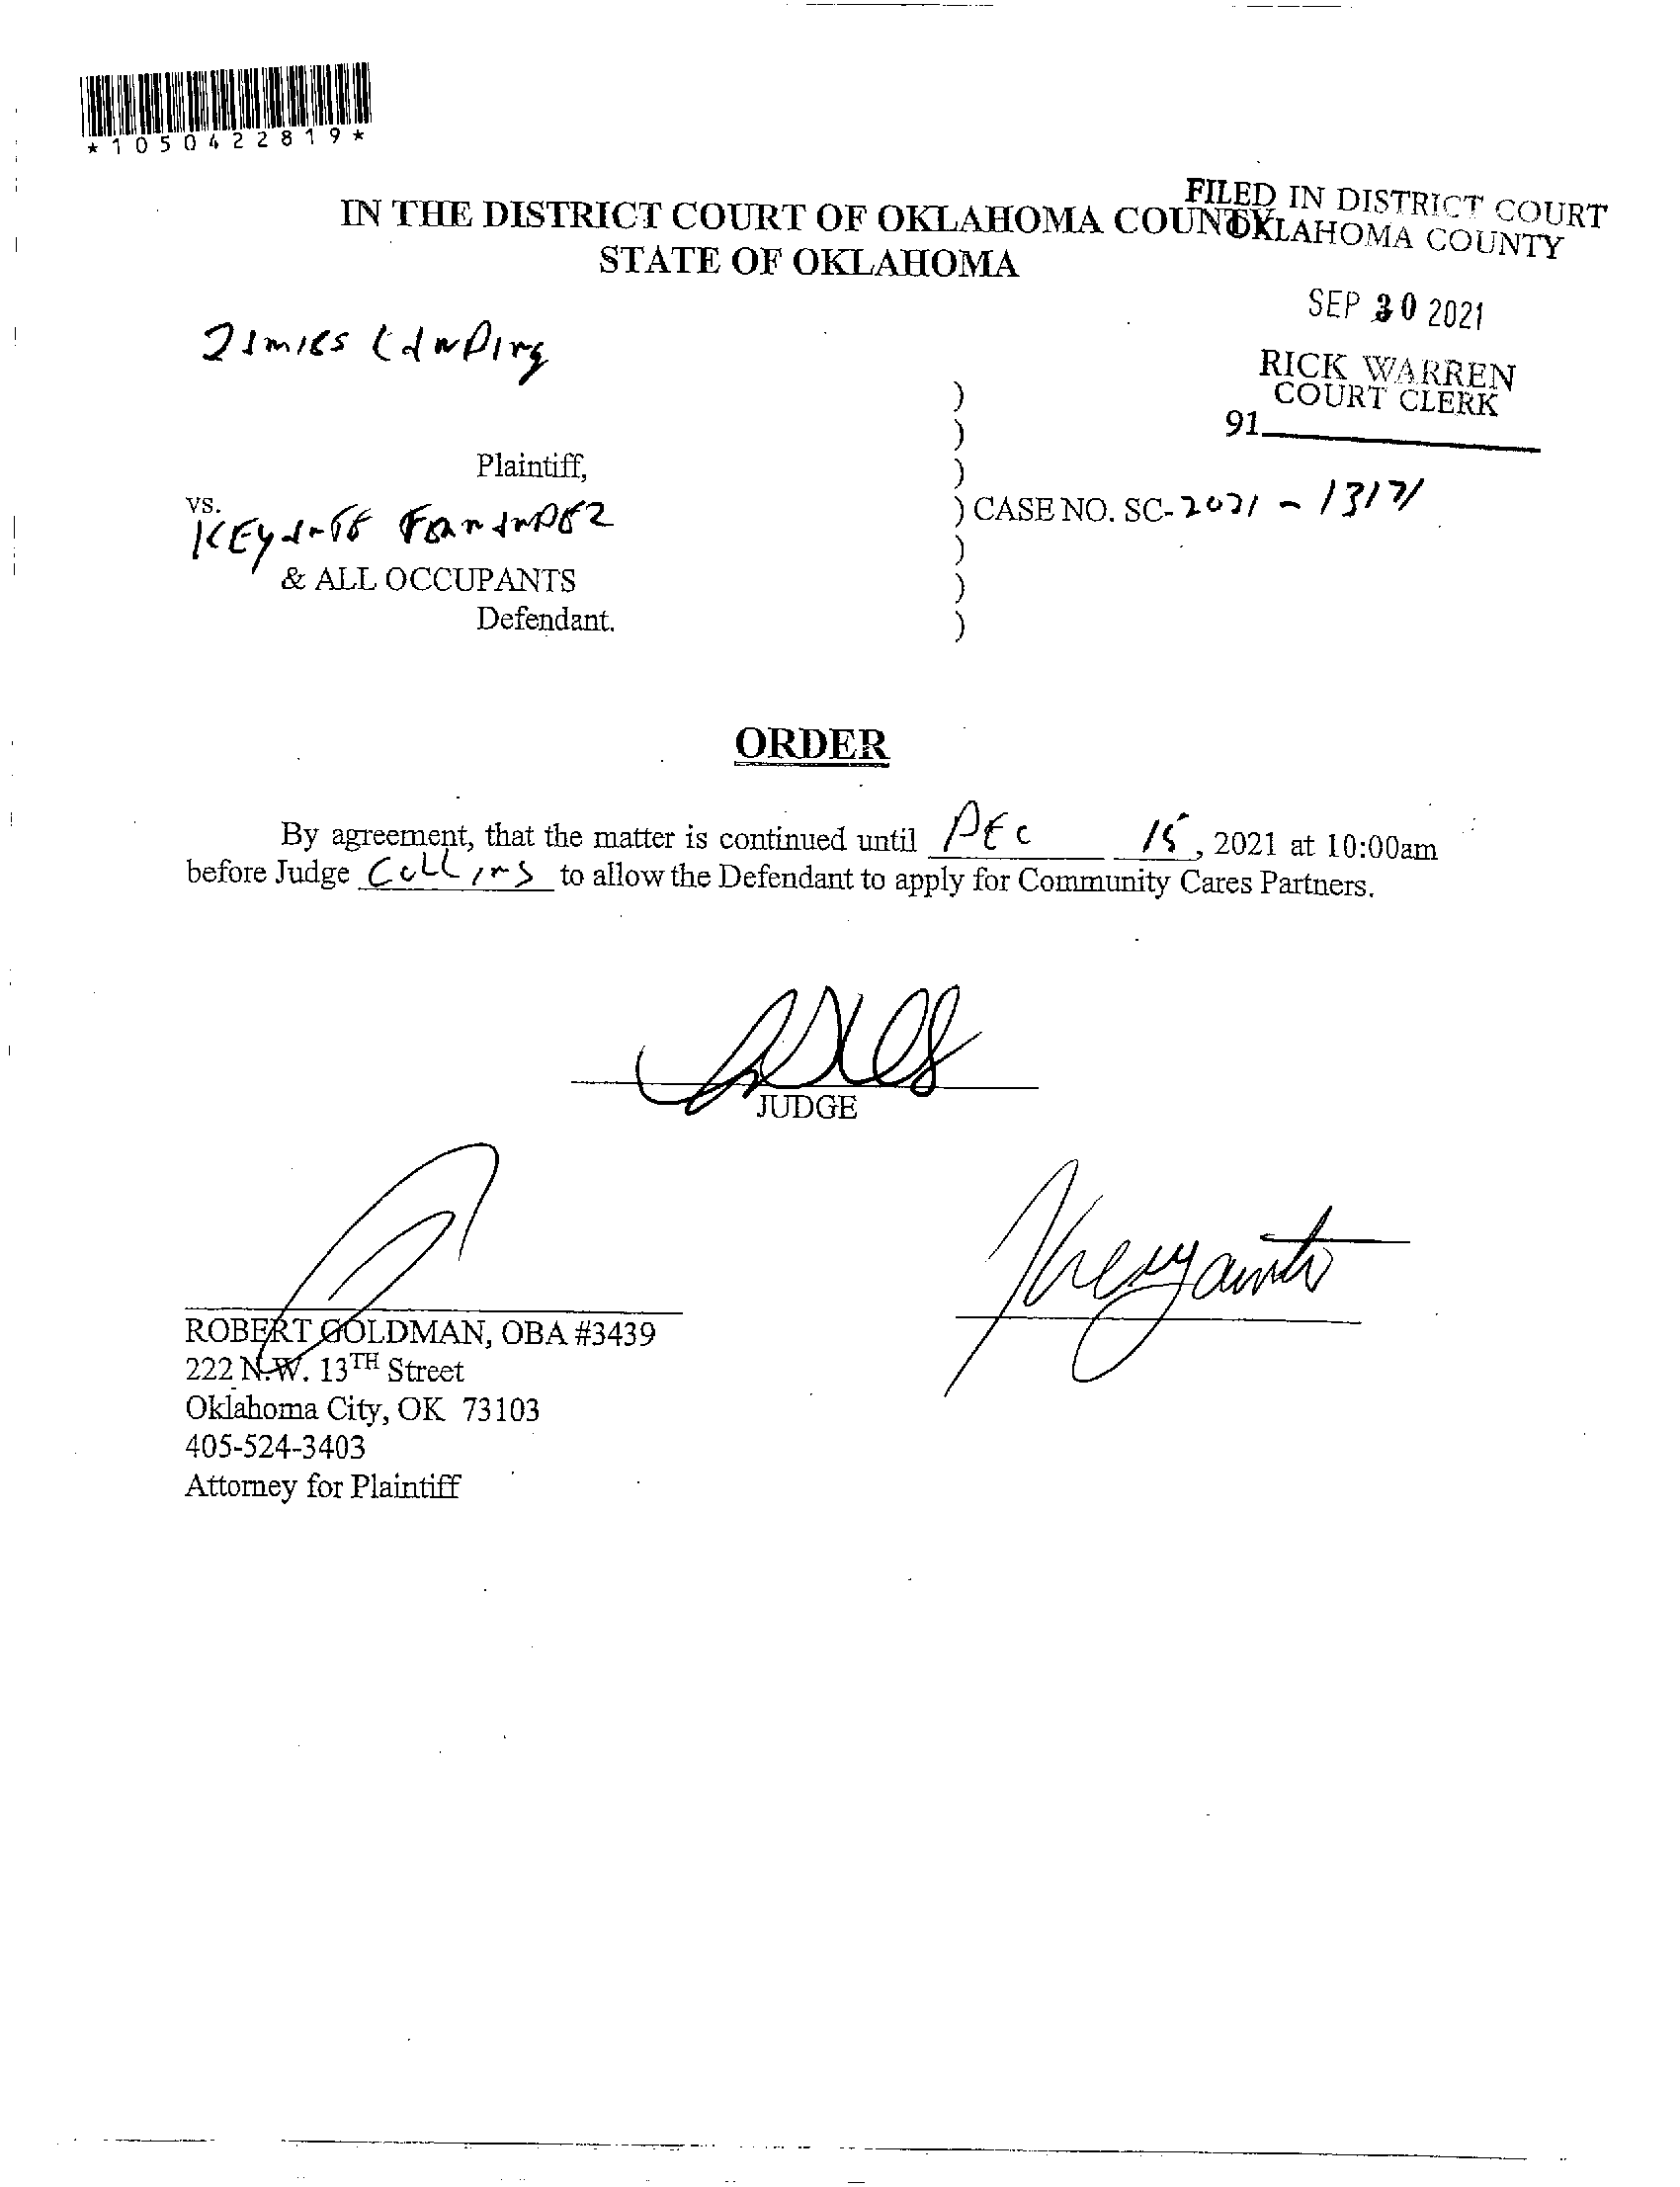 *1050422819*
FILED IN DISTRICT COURT
OKLAHOMA COUNTY
IN THE DISTRICT COURT OF OKLAHOMA COUNTY
STATE OF OKLAHOMA
SEP 30 2021
RICK WARREN
COURT CLERK
91
Landing
Plaintiff,
vs.
& ALL OCCUPANTS
Defendant.
)
)
)
) CASE NO. SC-2021-
)
)
)
ORDER
By agreement, that the matter is continued until DEC 15, 2021 at 10:00am
before Judge Collins to allow the Defendant to apply for Community Cares Partners.
JUDGE
ROBERT GOLDMAN, OBA #3439
222 N.W. 13TH Street
Oklahoma City, OK 73103
405-524-3403
Attorney for Plaintiff